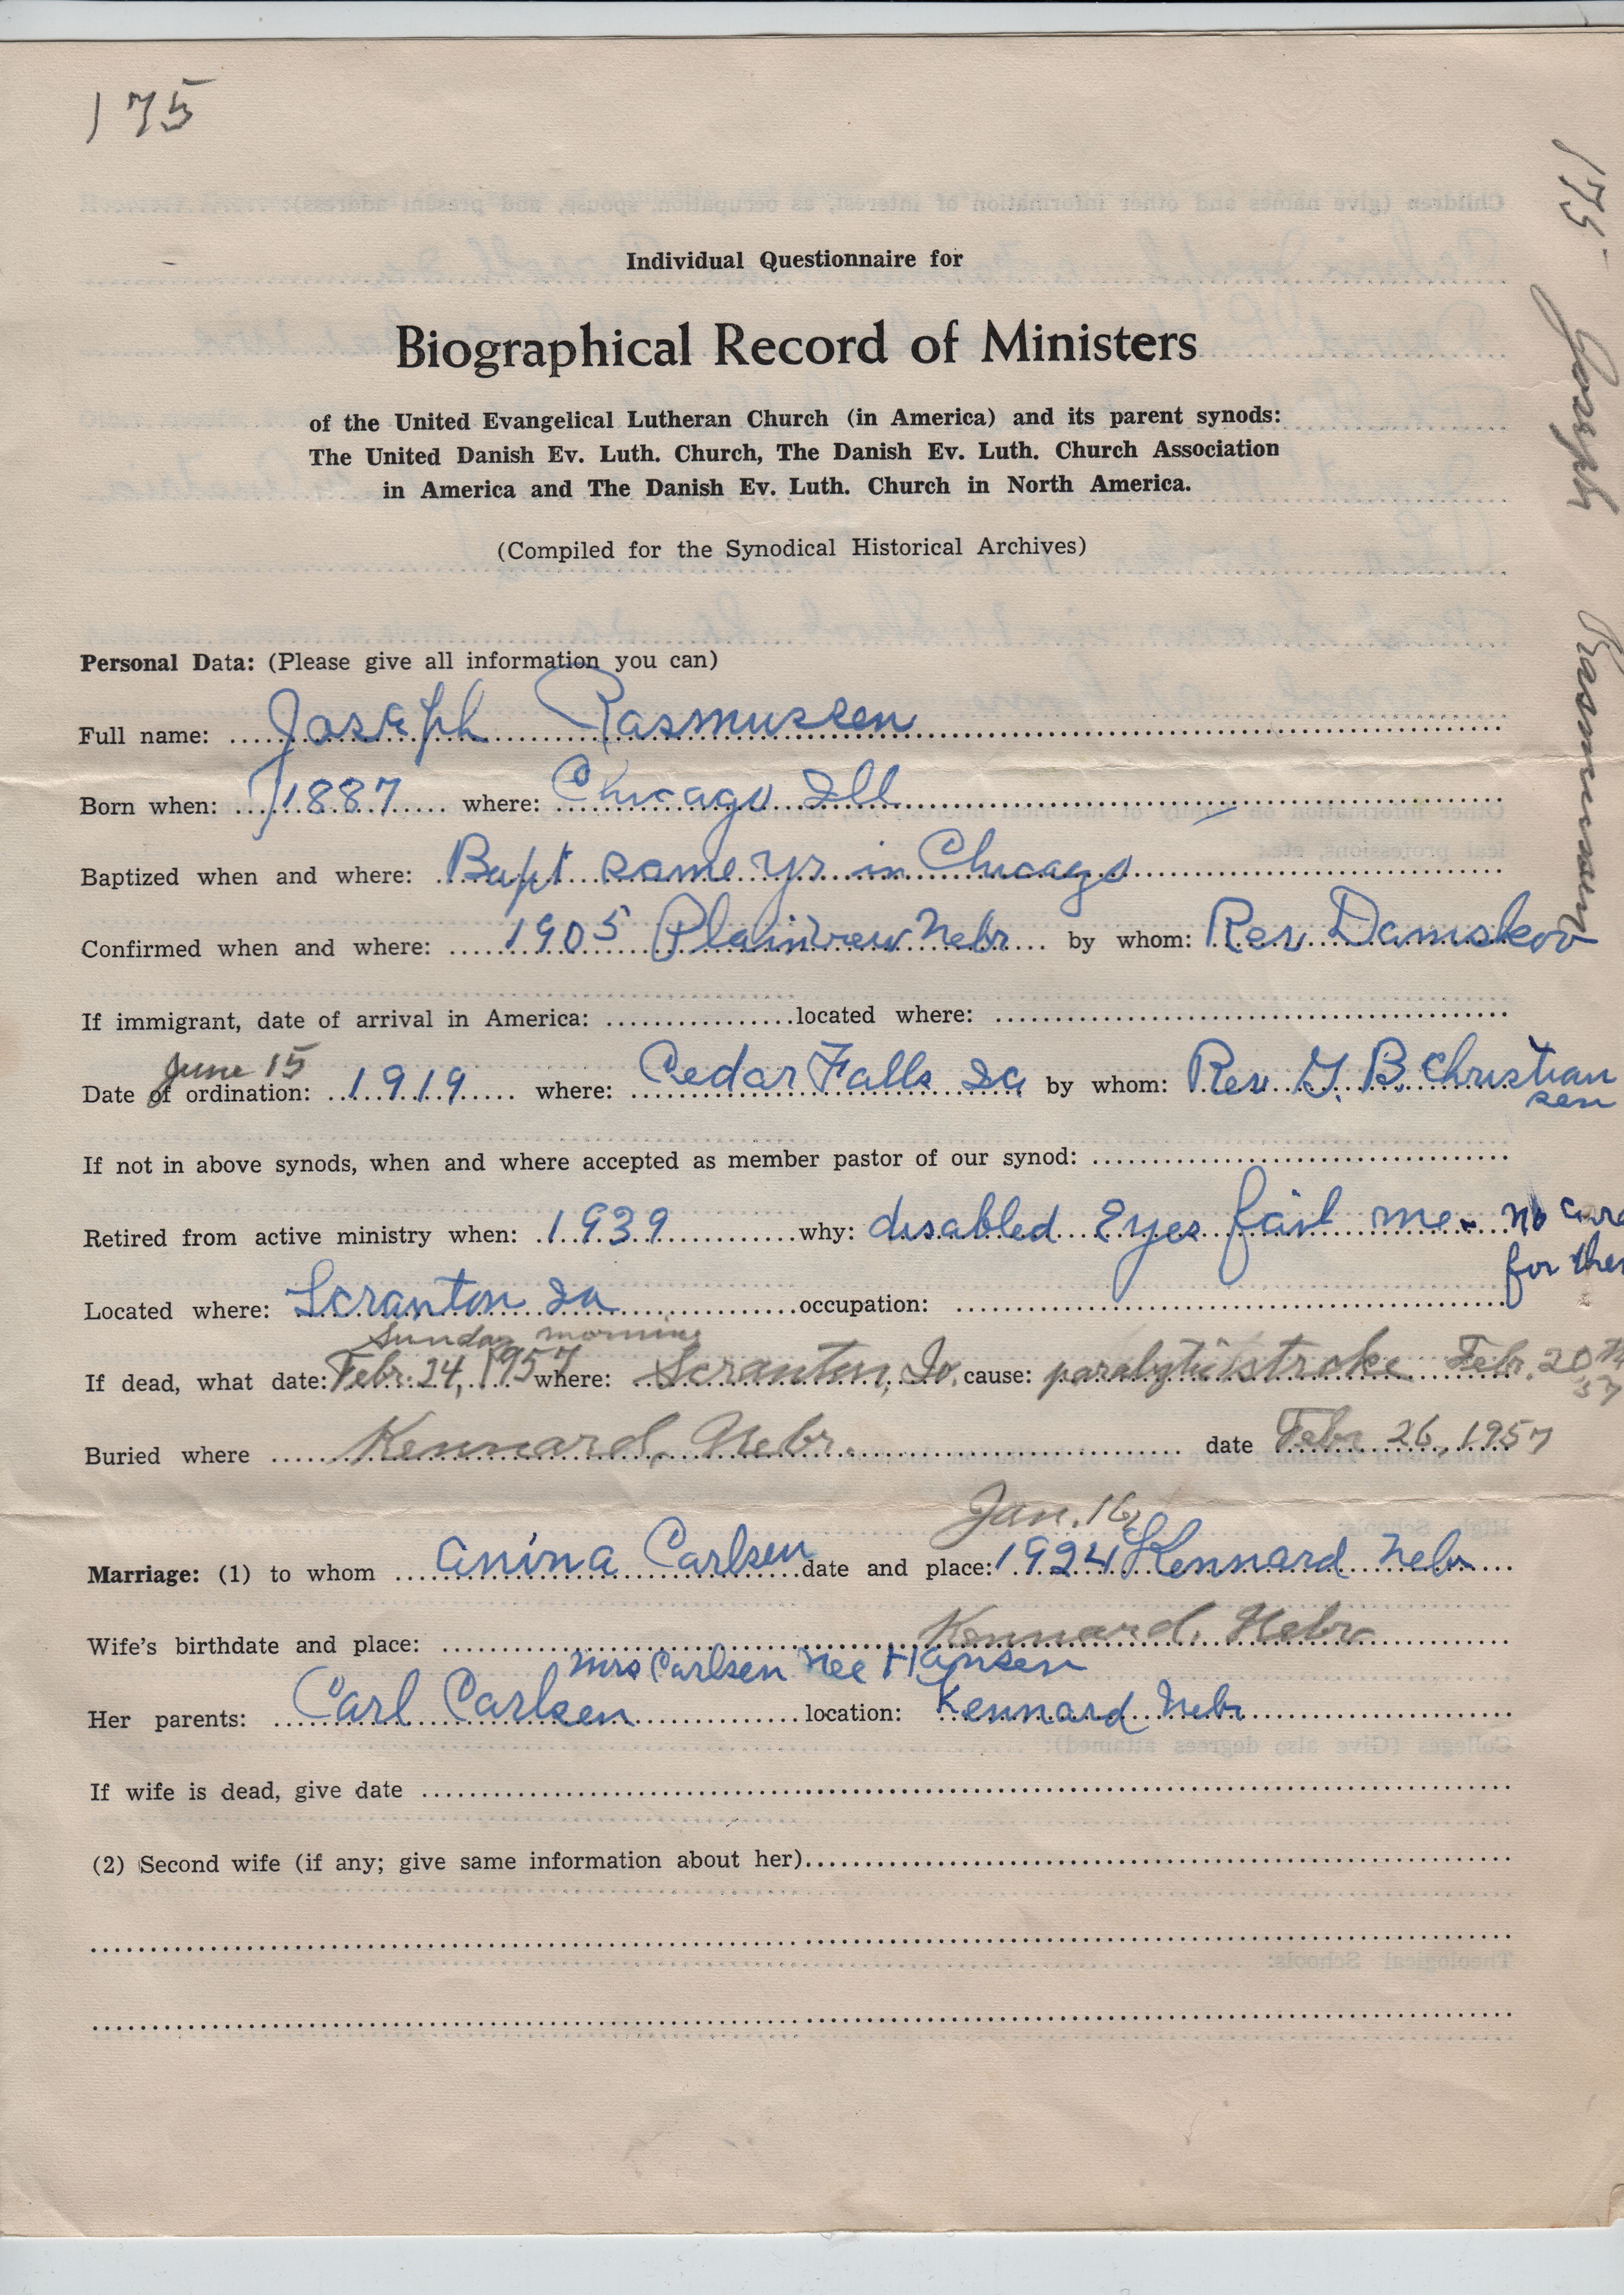 175
175 - Joseph Rasmussen
Individual Questionnaire for
Biographical Record of Ministers
of the United Evangelical Lutheran Church (in America) and its parent synods:
The United Danish Ev. Luth. Church, The Danish Ev. Luth. Church Association
in America and The Danish Ev. Luth. Church in North America.
(Compiled for the Synodical Historical Archives)
Personal Data: (Please give all information you can)
Full name: Joseph Rasmussen
Born when: 1887 where: Chicago Ill
Baptized when and where: Bapt same yr in Chicago
Confirmed when and where: 1905 Plainview Nebr by whom: Rev Damskov
If immigrant, date of arrival in America: located where:
June 15
Date of ordination: 1919 where: Cedar Falls Ia by whom: Rev. G. B. Christian
sen
If not in above synods, when and where accepted as member pastor of our synod:
Retired from active ministry when: 1939 why: disabled Eyes fail me - no cure
for them
Located where: Scranton Ia occupation:
Sunday morning
If dead, what date: Febr. 24, 1957 where: Scranton, Io. cause: paralytic stroke Febr. 20th
57
Buried where Kennard, Nebr. date Febr 26, 1957
Jan. 16,
Marriage: (1) to whom Anina Carlsen date and place: 1924 Kennard Nebr
Wife's birthdate and place: Kennard, Nebr
Mrs Carlsen nee Hansen
Her parents: Carl Carlsen location: Kennard Nebr
If wife is dead, give date
(2) Second wife (if any; give same information about her)